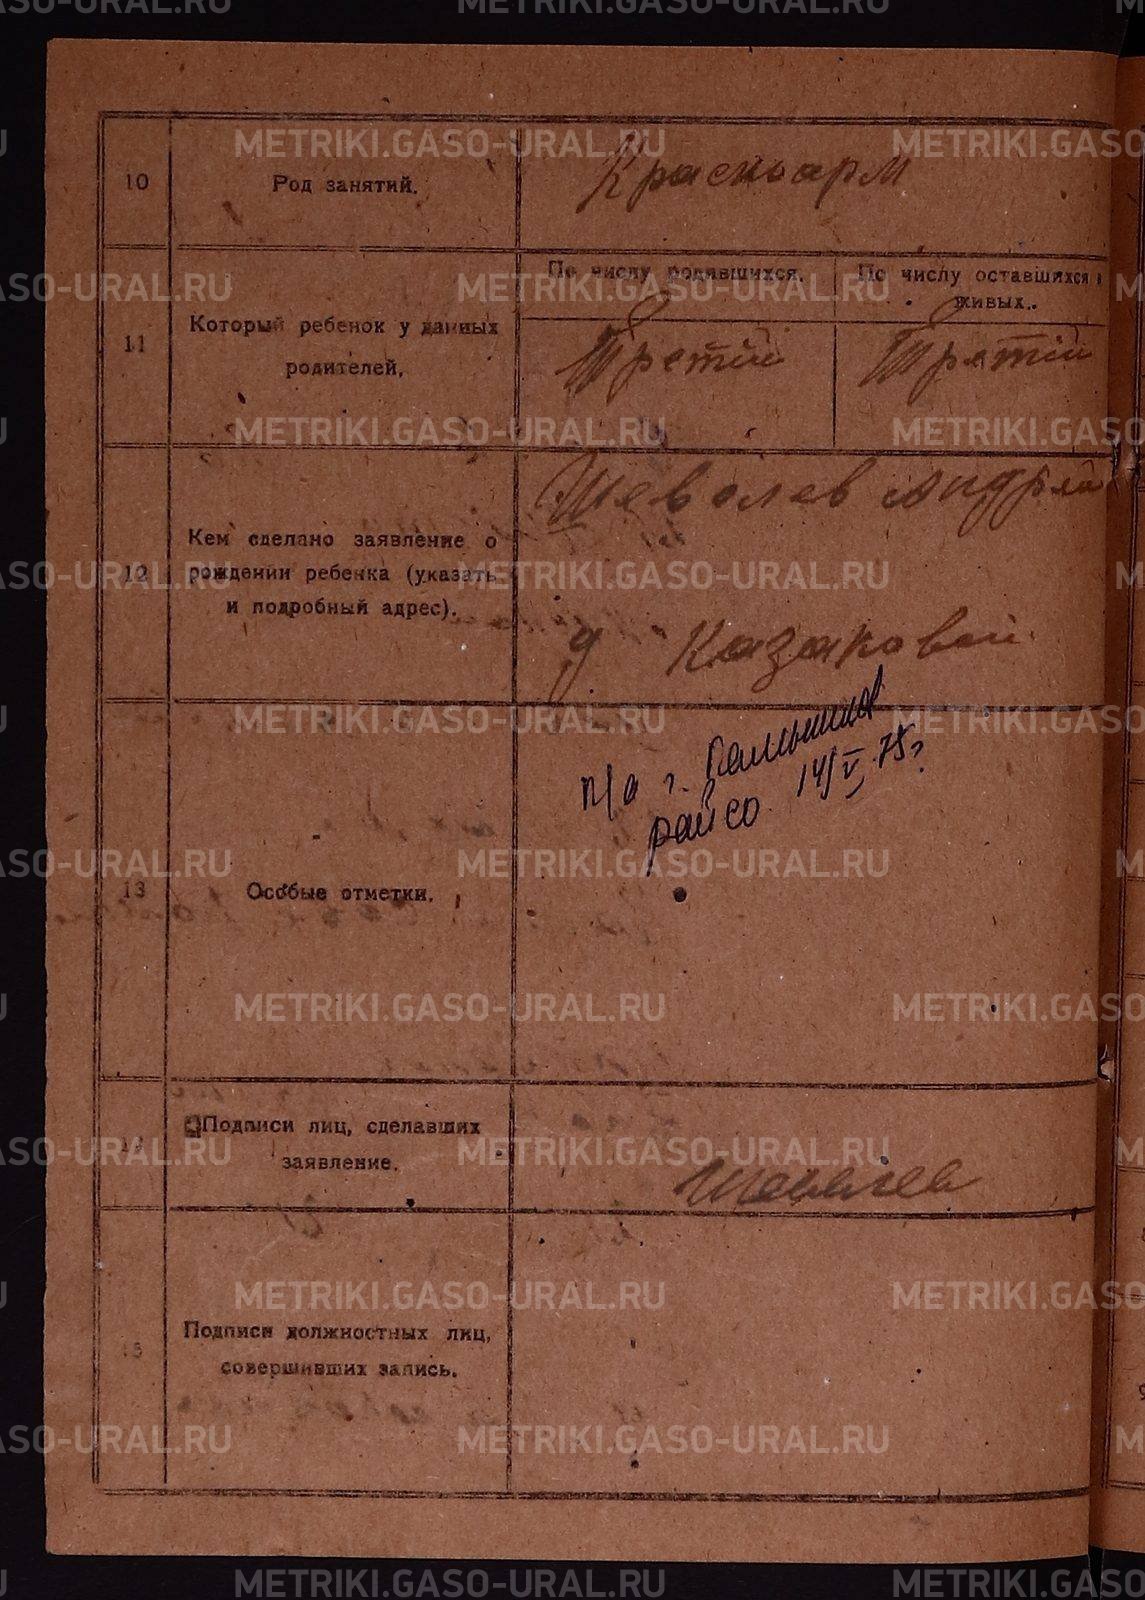 10
Род занятий.
Красноарм
11
Который ребенок у данных
родителей.
По числу родившихся.
По числу оставшихся в
живых.
Третий
Третий
12
Кем сделано заявление о
рождении ребенка (указать
и подробный адрес).
Шевелев Андрей
д Казаковой
13
Особые отметки.
п/о г.
райсо 14/V 75г
14
Подписи лиц, сделавших
заявление.
Шевелев
15
Подписи должностных лиц,
совершивших запись.
METRIKI.GASO-URAL.RU